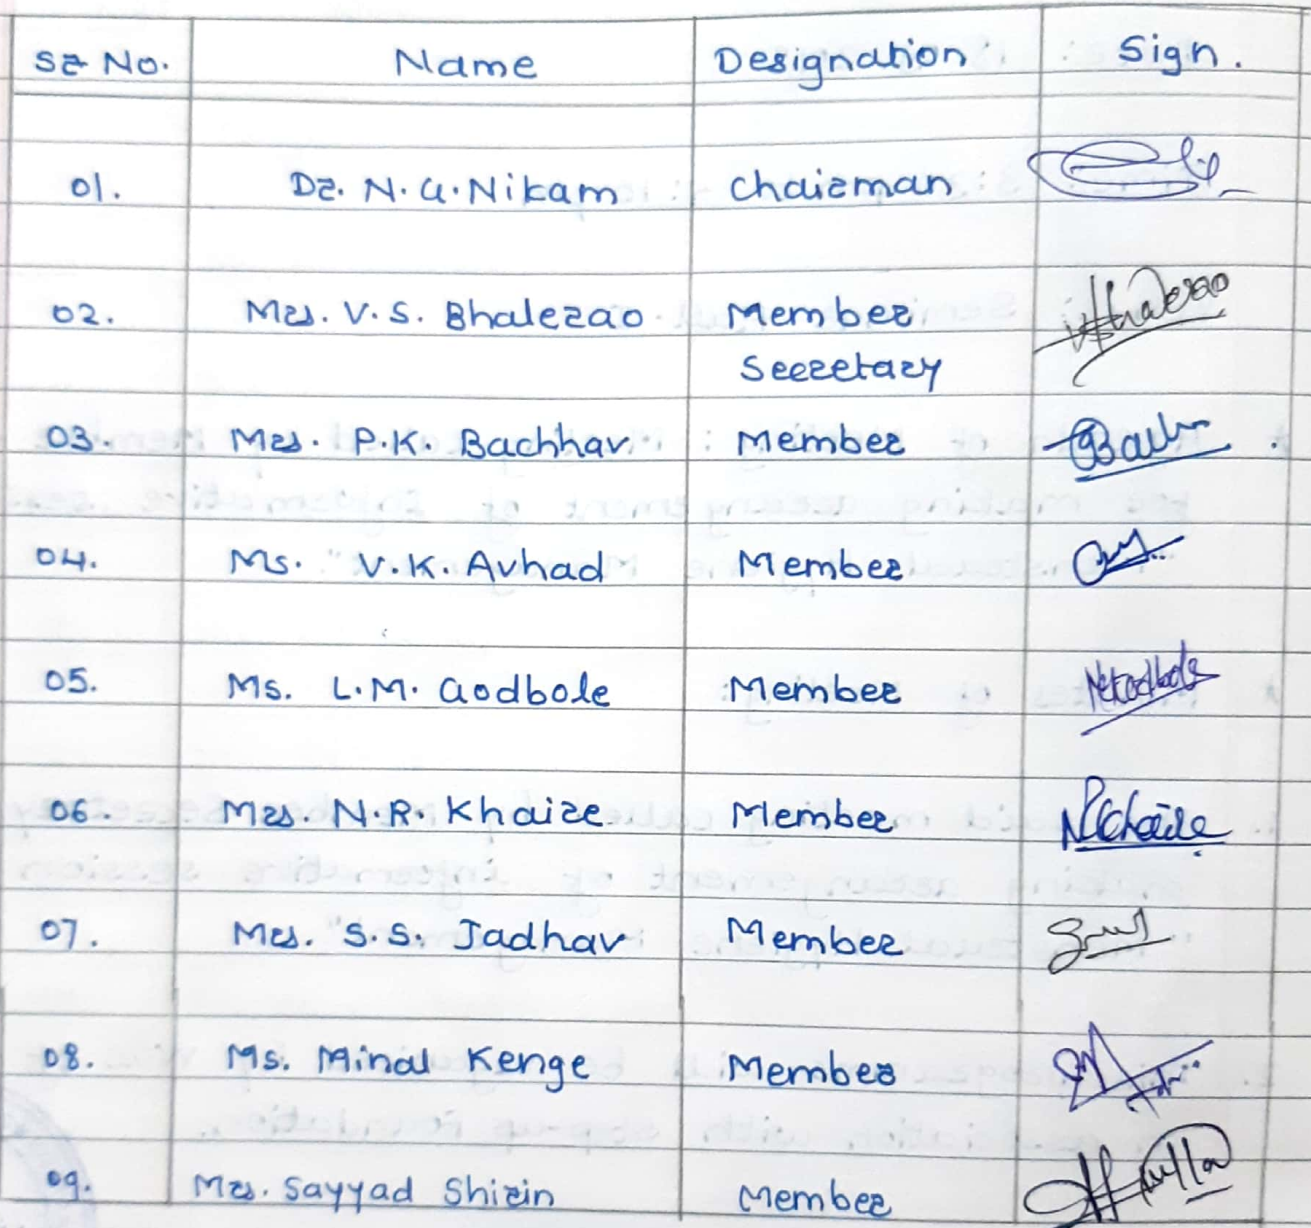 Sr No. Name Designation Sign.
01. Dr. N.G.Nikam Chairman
02. Mrs. V.S. Bhalerao Member
Secretary
03. Mrs. P.K. Bachhav Member
04. Ms. V K. Avhad Member
05. Ms. L.M. Godbole Member
06. Mrs N.R. Khaire Member
07. Mrs. S.S. Jadhav Member
08. Ms. Minal Kenge Member
09. Mrs. Sayyad Shirin Member